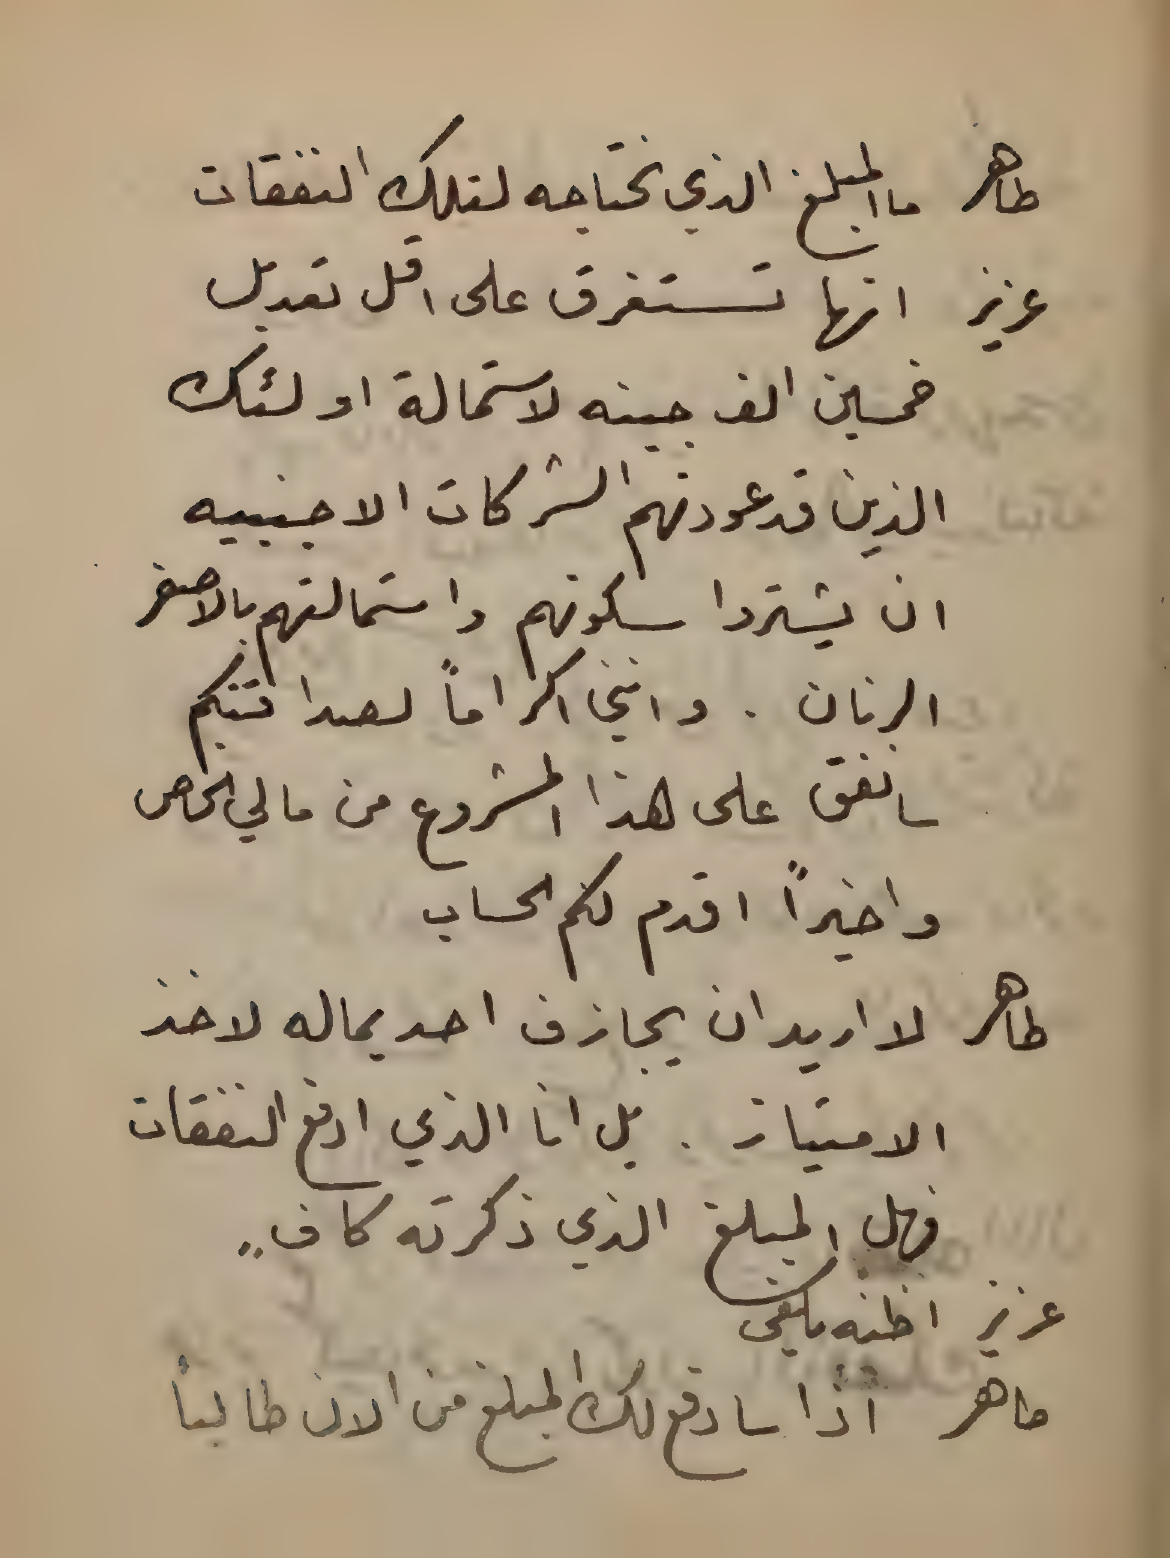 طاهر ما المبلغ الذي نحتاجه لتلك النفقات
عزيز انها تستغرق على اقل تعديل
خمسين الف جنيه لاستمالة اولئك
الذين قد عودتهم الشركات الاجنبيه
ان يشتروا سكوتهم واستمالتهم بالاصفر
الرنان . وانني اكراماً لصداقتكم
سانفق على هذا المشروع من مالي الخاص
واخيراً اقدم لكم الحساب
طاهر لا اريد ان يجازف احد بماله لاخذ
الامتياز . بل انا الذي ادفع النفقات
فهل المبلغ الذي ذكرته كاف ..
عزيز اظنه يكفي
طاهر اذا سادفع لك المبلغ من الان طالباً